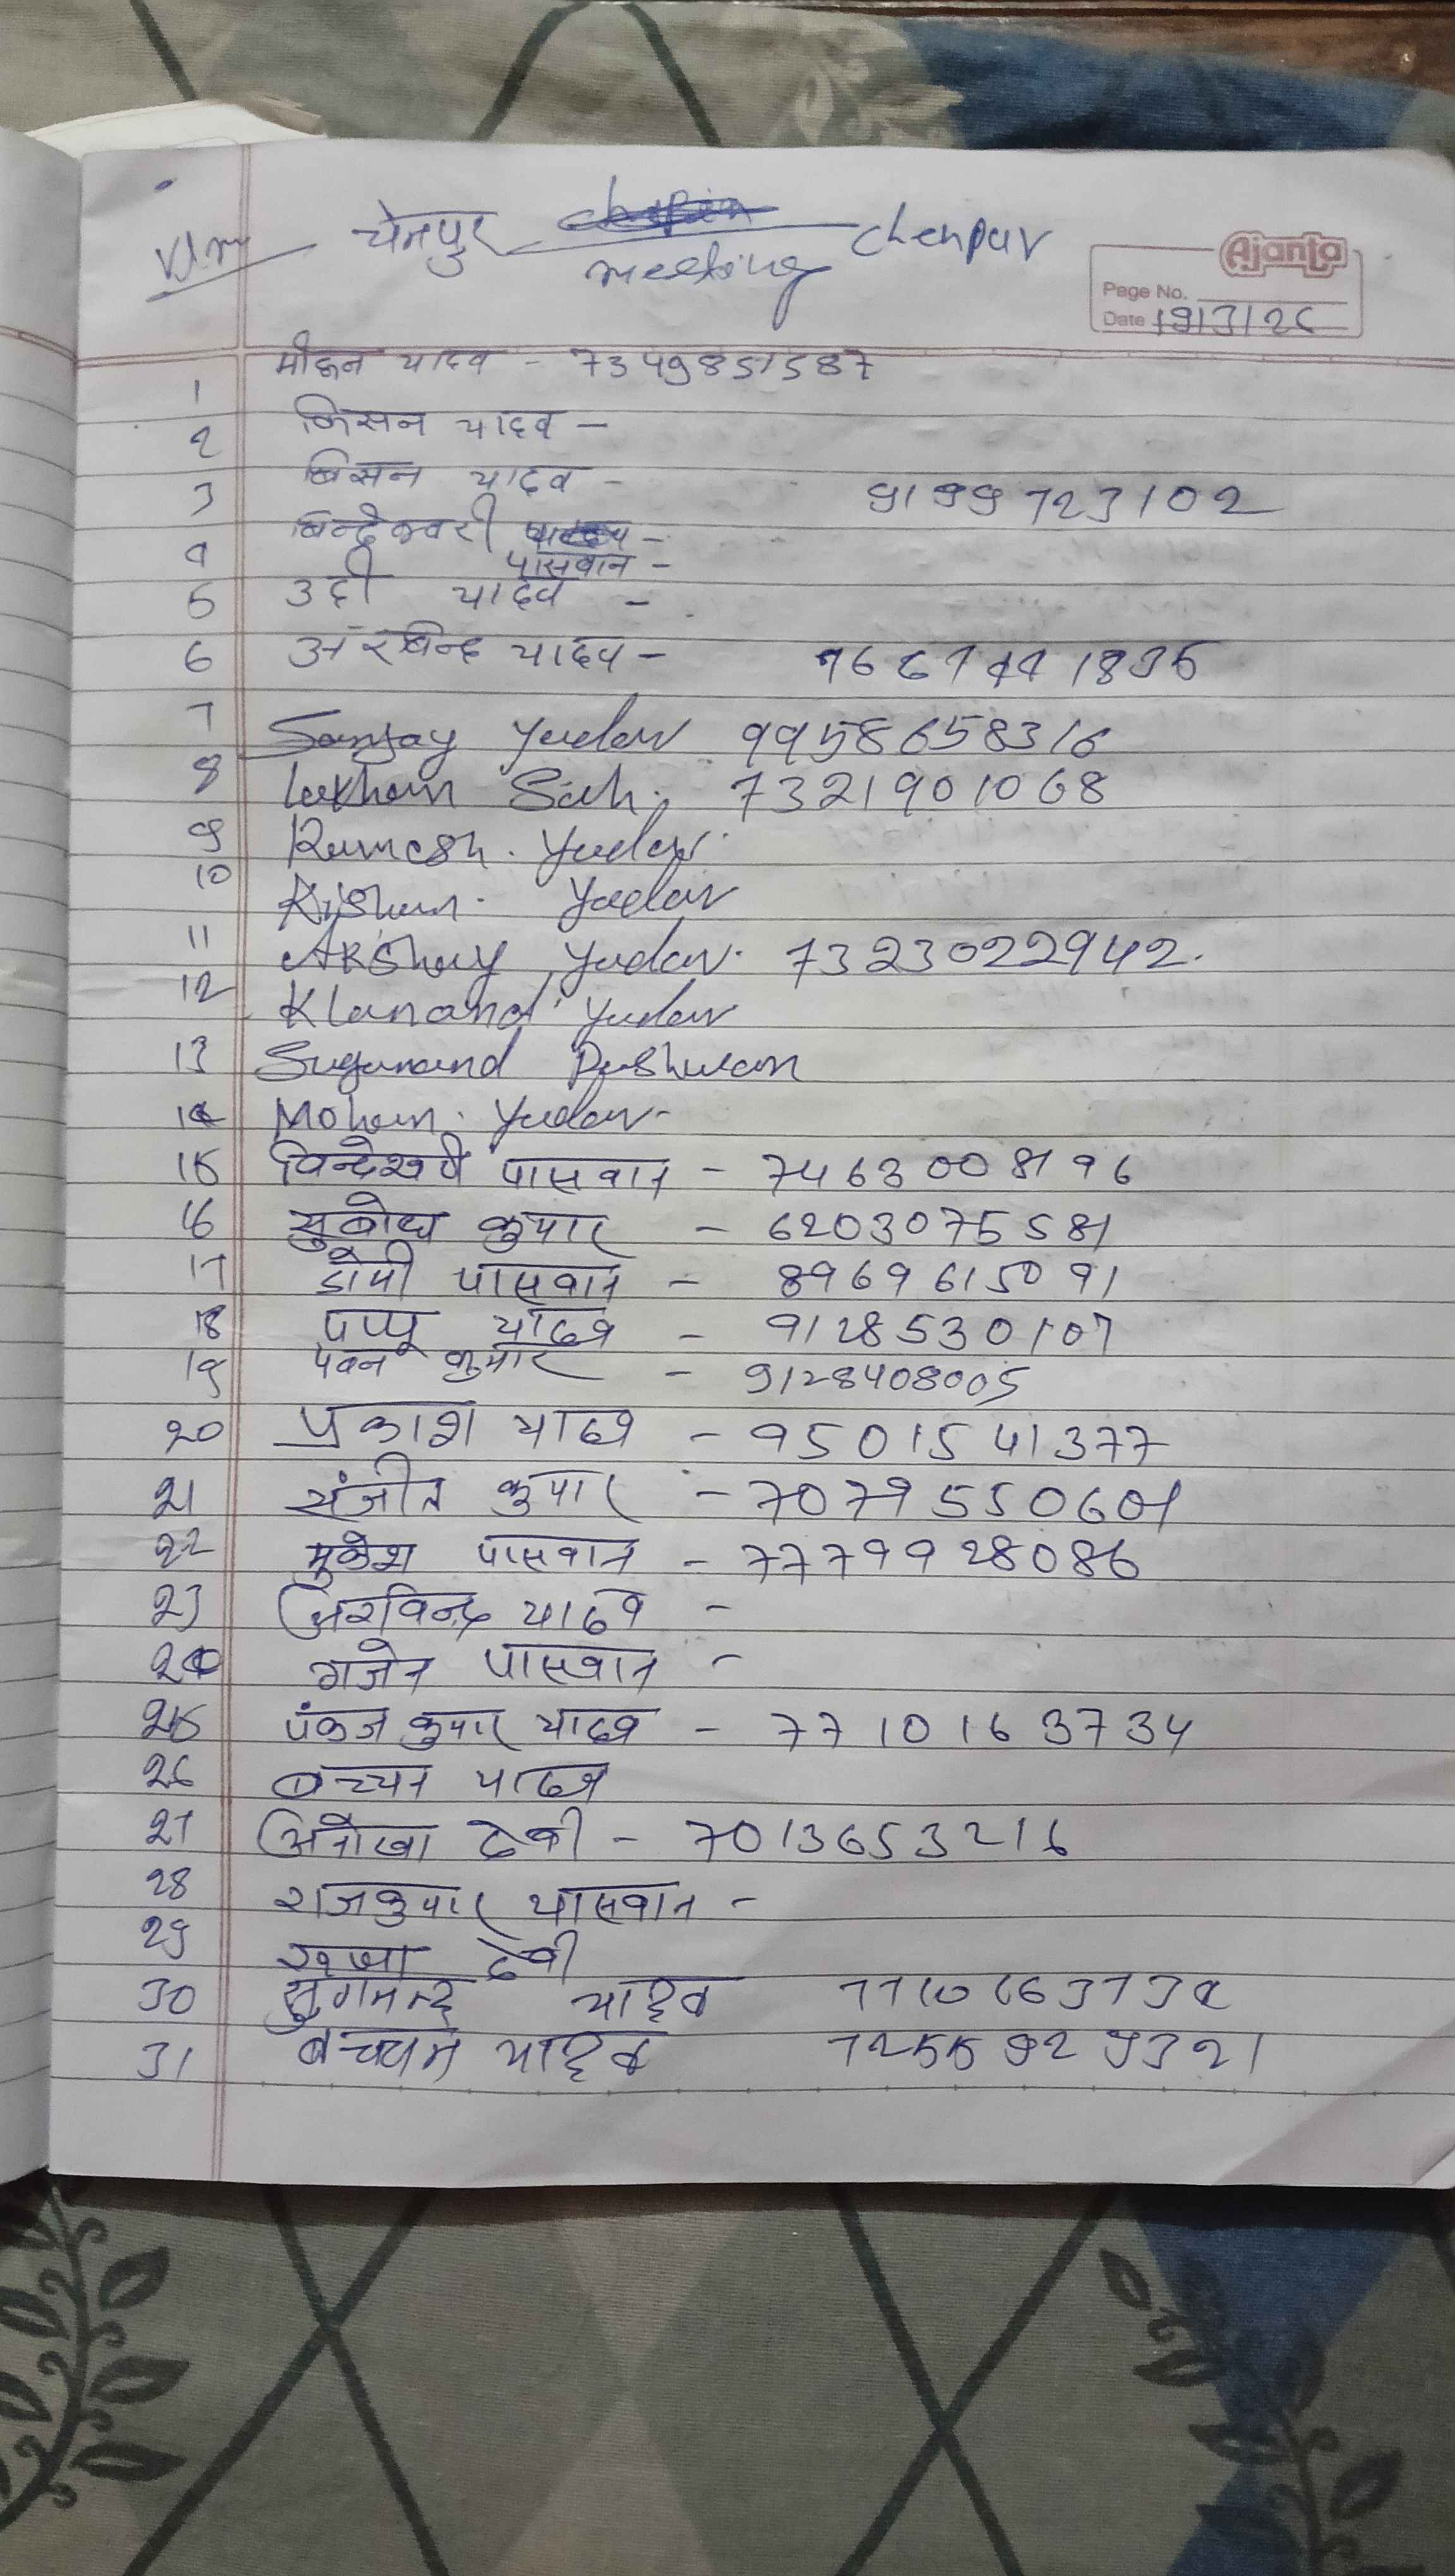 चेनपुर meeting Chenpur
Ajanta
Page No.
Date 19/3/26
1 मोहन यादव - 7349851587
2 किसन यादव -
3 बिसन यादव - 9199723102
4 बिन्देश्वरी
पासवान -
5 उदी यादव -
6 अरबिन्द यादव -
7 Sanjay Yadav 9958658316
8 Lakhan Sah. 7321901068
9 Ramesh. Yadav.
10 Kishun. Yadav
11 Akshay Yadav. 7323022942.
12 Klanand Yadav
13 Suganand Pashwan
14 Mohan. Yadav-
15 विन्देश्वरी पासवान - 7463008196
16 सुबोध कुमार - 6203075581
17 डोमी पासवान - 8969615091
18 पप्पू यादव - 9128530107
19 पवन कुमार - 9128408005
20 प्रकाश यादव - 9501541377
21 संजीत कुमार - 7079550601
22 मुकेश पासवान - 7779928086
23 अरविन्द यादव -
24 गजेन पासवान -
25 पंकज कुमार यादव - 7710163734
26 बच्चन यादव
27 अनोखा देवी - 7013653216
28 राजकुमार पासवान -
29 देवी
30 सुगनन्द यादव 7710163734
31 बच्चन यादव 7255929321